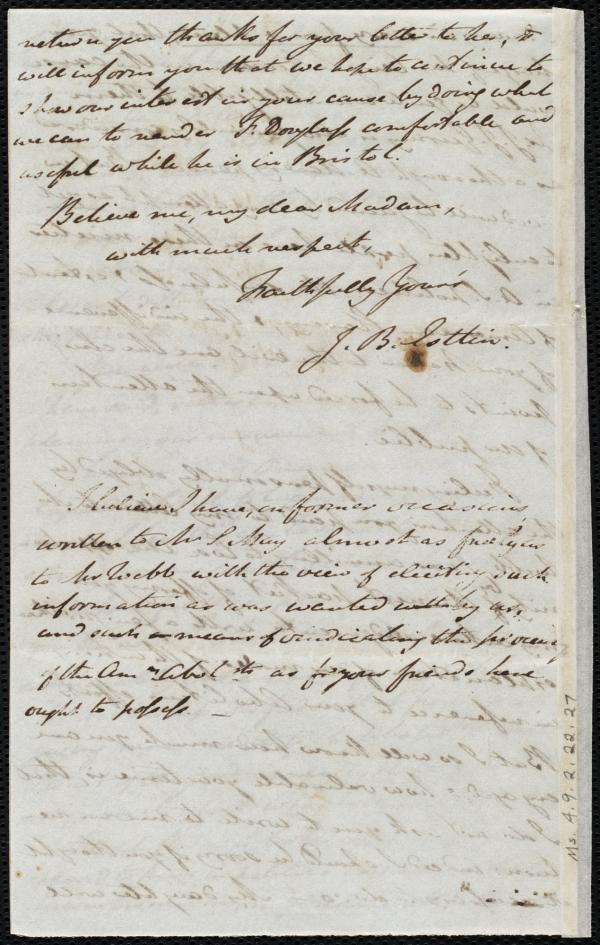 return you thanks for your letter to her, &
will inform you that we hope to continue to
show our interest in your cause by doing what
we can to render F. Douglass comfortable and
useful while he is in Bristol.
Believe me, my dear Madam,
with much respect,
Faithfully Yours
J. B. Estlin.
I believe I have, on former occasions,
written to Mr S. May almost as freely as
to Mr Webb with the view of eliciting such
information as was wanted with by us,
and such means of vindicating the proceedgs
of the Amn Abolsts as for your friends here
ought to possess. —
Ms. A. 9. 2. 22. 27